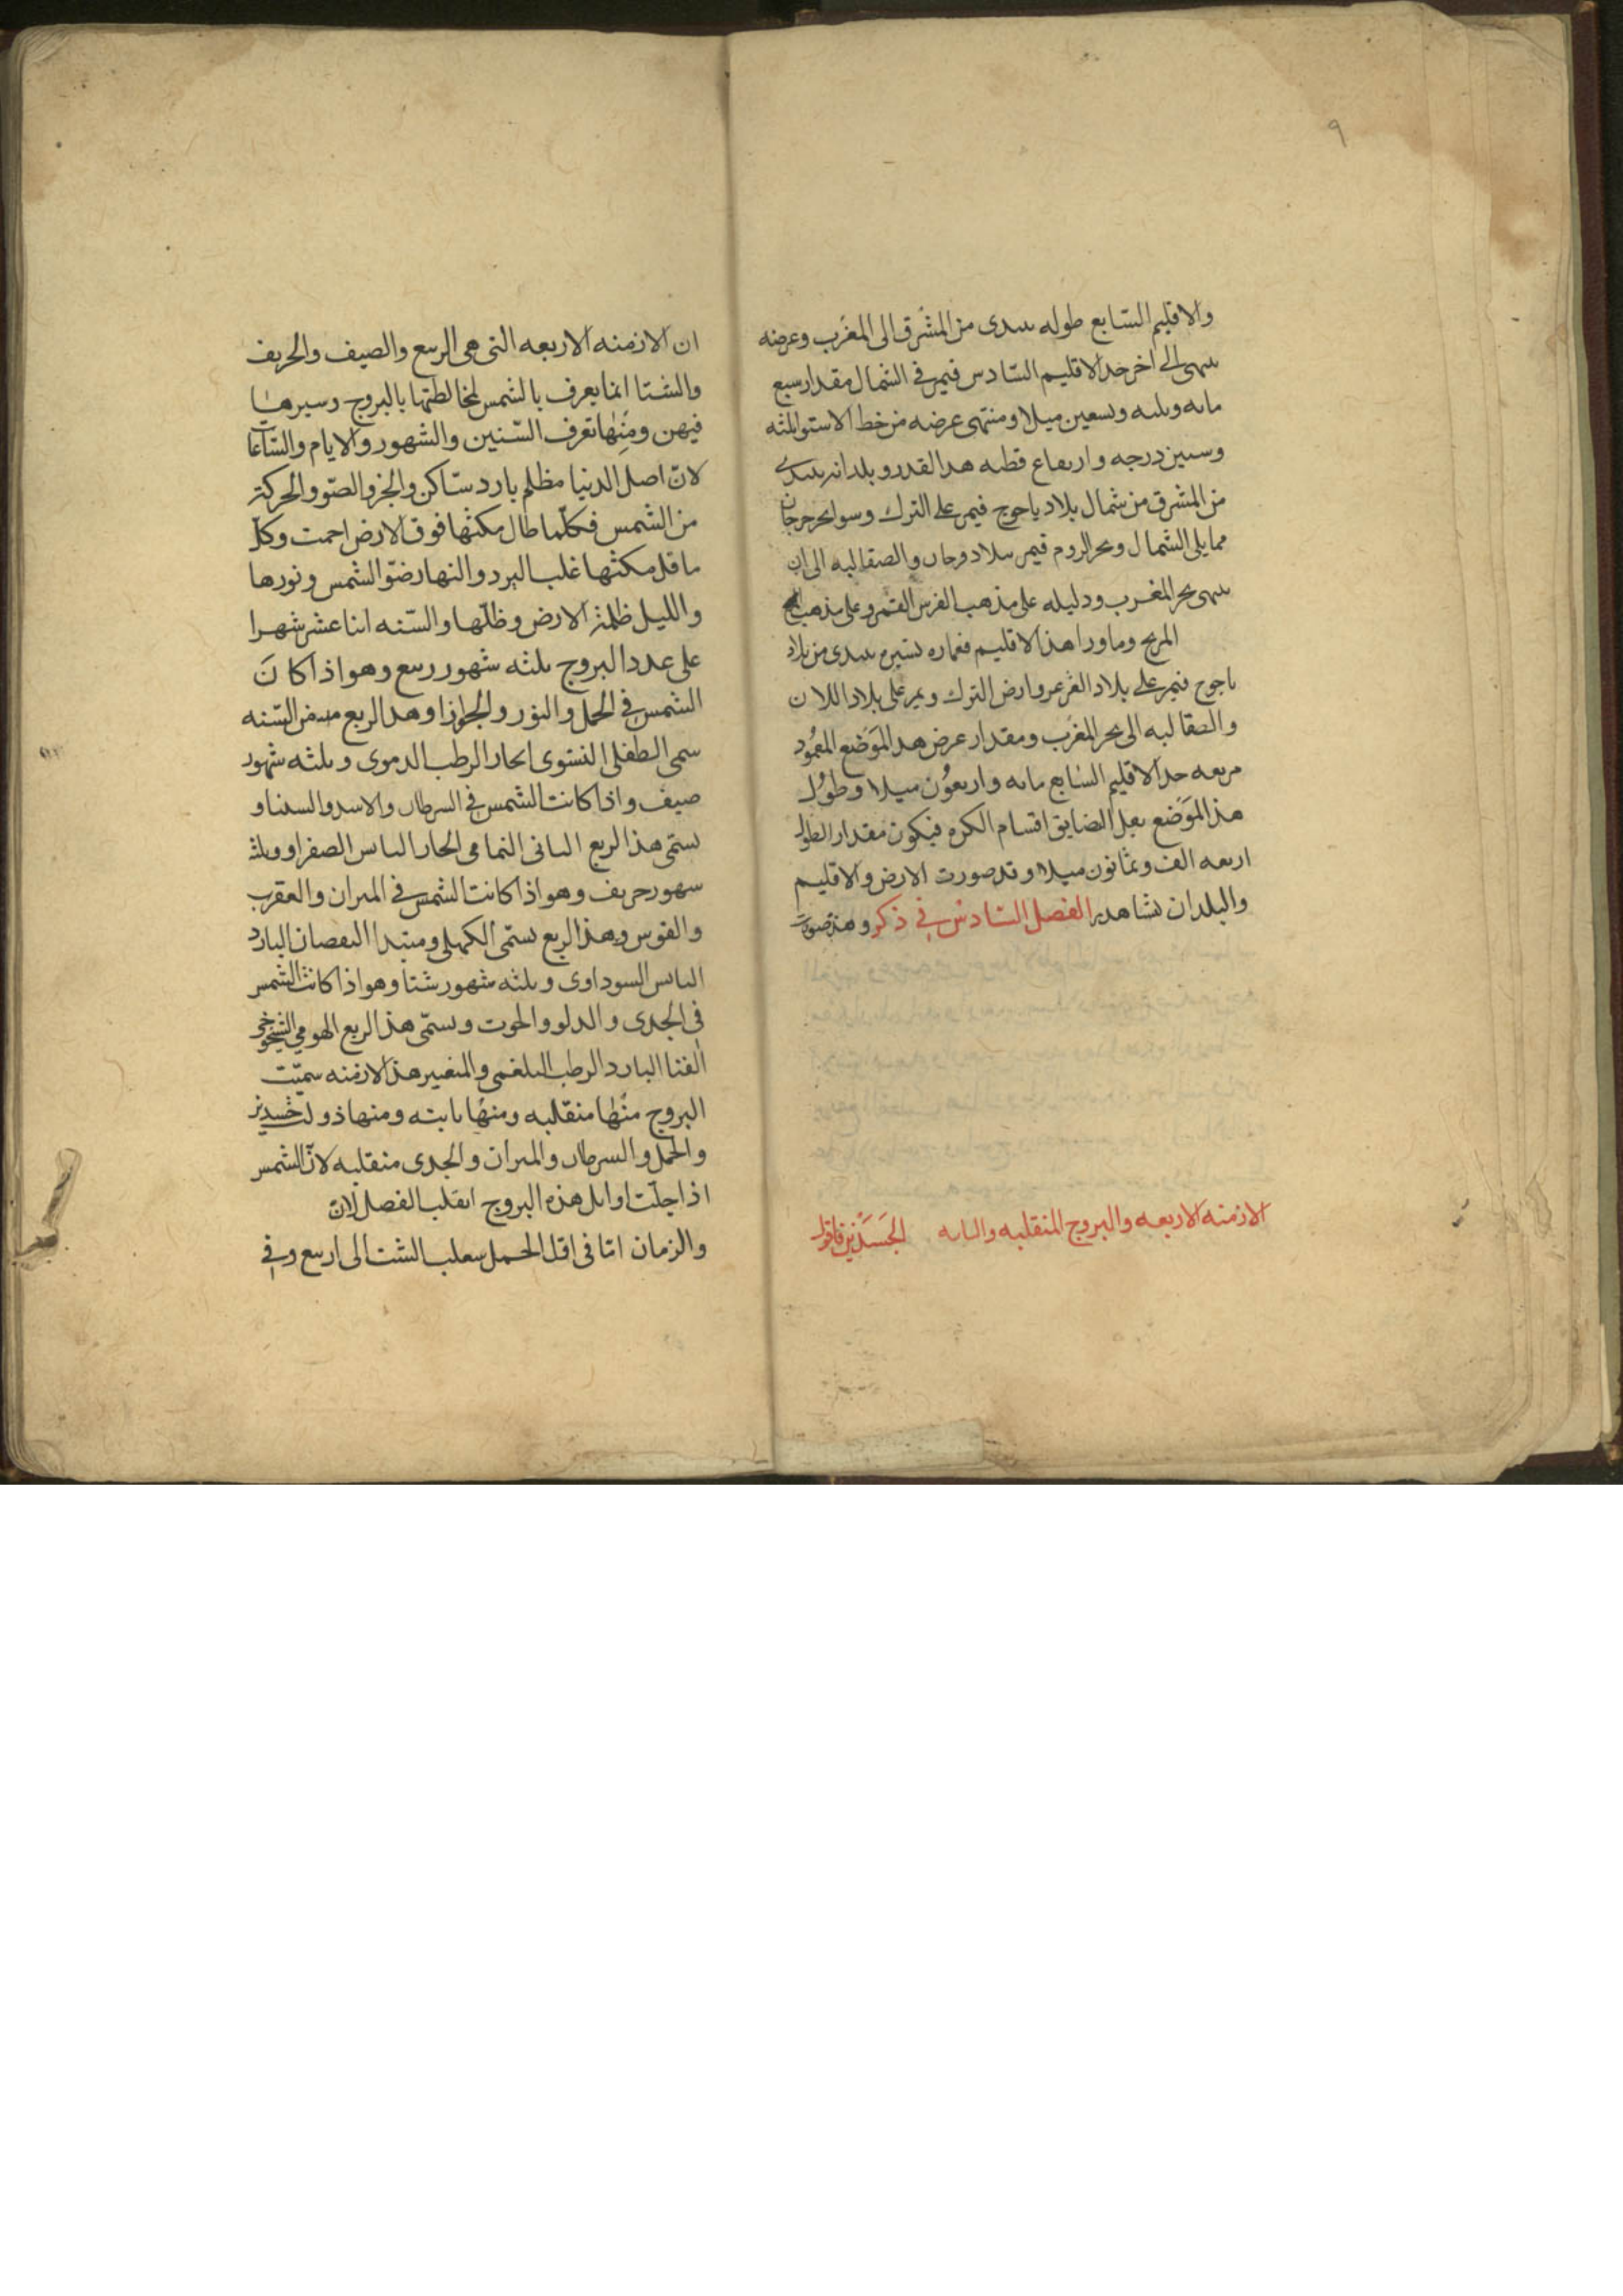 ٩
والاقليم السّابع طوله ٮٮٮدى من المشرق الى المغرب وعرضه
ٮٮٮهى الى اخر حد الاقليم السّادس فيمر فى الشمال مقدار سبع
مايه وثلثه وتسعين ميلا ومنتهى عرضه من خط الاستوا ثلثه
وستين درجه وارتفاع قطبه هدا القدر وبلدانه تبتدى
من المشرق من شمال بلاد ياجوج فيمر على الترك وسواحل بحر جرجان
مما يلى الشمال وبحر الروم فيمر ببلاد وجان والصقالبه الى ان
ينتهى بحر المغرب ودليله على مذهب الفرس القمر وعلى مذهب
المريخ وما ورا هذا الاقليم فعماره يسيره تبتدى من بلاد
ياجوج فيمر على بلاد الغزغز وارض الترك ويمر على بلاد اللان
والصقالبه الى بحر المغرب ومقدار عرض هدا الموَضع المعمُور
من بعد حد الاقليم السابع مايه واربعوُن ميلا وطوُل
هذا الموَضع اقسام الكره فيكون مقدار الطول
اربعه الف وثمانون ميلا وقد صورت الارض والاقليم
والبلدان تشاهده الفصل السّادس فى ذكر وهذه صورت
الازمنه الاربعه والبروج المنقلبه والثابته الجَسَدَين فاقول
ان الازمنه الاربعه التى هى الربيع والصيف والخريف
والشتا انما يعرف بالشمس لمخالطتها بالبروج وسيرها
فيهن ومنها تعرف السّنين والشهور والايام والسّاعا
لانّ اصل الدنيا مظلم بارد ساكن والحر والضّو والحركة
من الشمس فكلّما طال مكثها فوق الارض احمت وكل
ما قل مكثها غلب البرد والنهار ضوّ الشمس ونورها
والليل ظلمة الارض وظلّها والسّنه اثنا عشر شهرا
على عدد البروج ثلثه شهور ربيع وهو اذا كانَ
الشمس فى الحمل والثور والجوازا وهدا الربع من السّنه
سمى الطفلى النستوى الحار الرطب الدموى وثلثه شهور
صيف واذا كانت الشمس فى السرطان والاسد والسنباو
يسمّى هذا الربع الثانى النمامى الحار اليابس الصفراو وثلث
شهور خريف وهو اذا كانت الشمس فى الميزان والعقرب
والقوس وهذا الربع يسمّى الكهلى ومبتدا النقصان البارد
اليابس السوداوى وثلثه شهور شتا وهو اذا كانت الشمس
فى الجدى والدلو والحوت ويسمّى هذا الربع الهومى الشيخوخى
الفنا البارد الرطب البلغمى والمتغيير هذا الازمنه سميّت
البروج منها منقلبه ومنها ثابته ومنها ذو لجسدين
والحمل والسرطان والميزان والجدى منقلبه لانّ الشمس
اذا حلّت اوايل هذه البروج انقلب الفصل لان
والزمان امّا فى اوّل الحمل ينقلب الشتا الى اربيع وفى